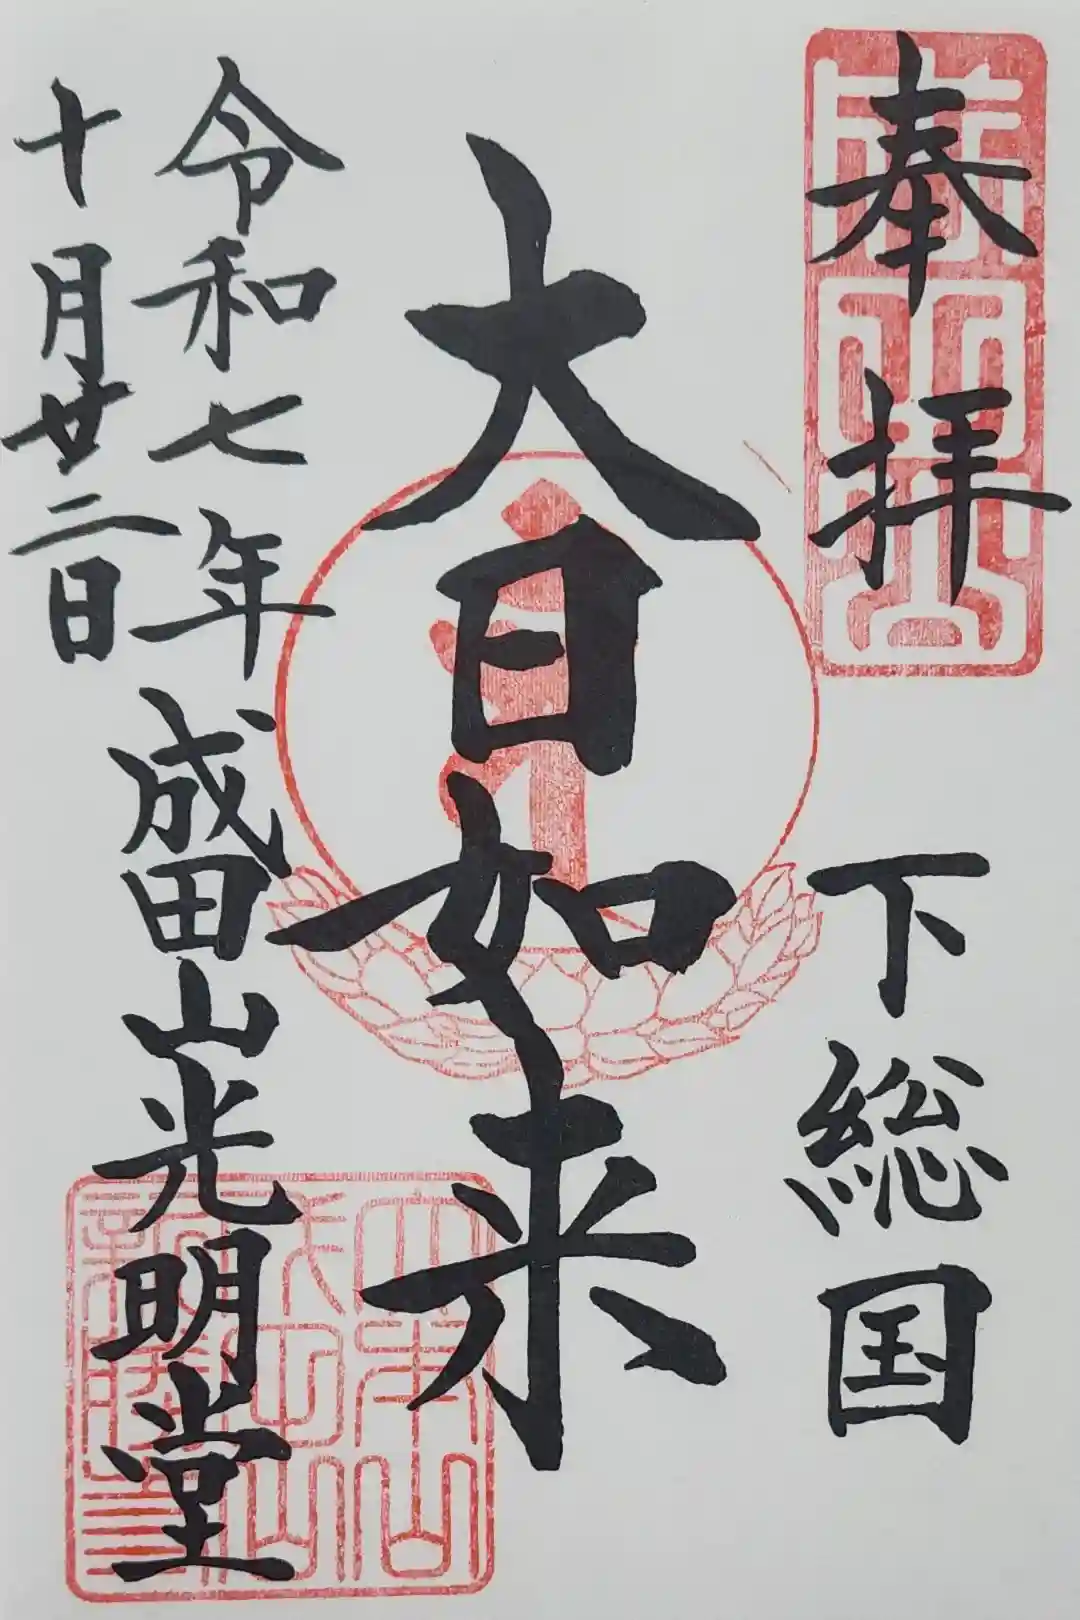 奉拝
下総国
大日如来
令和七年
十月廿二日
成田山光明堂
成田山